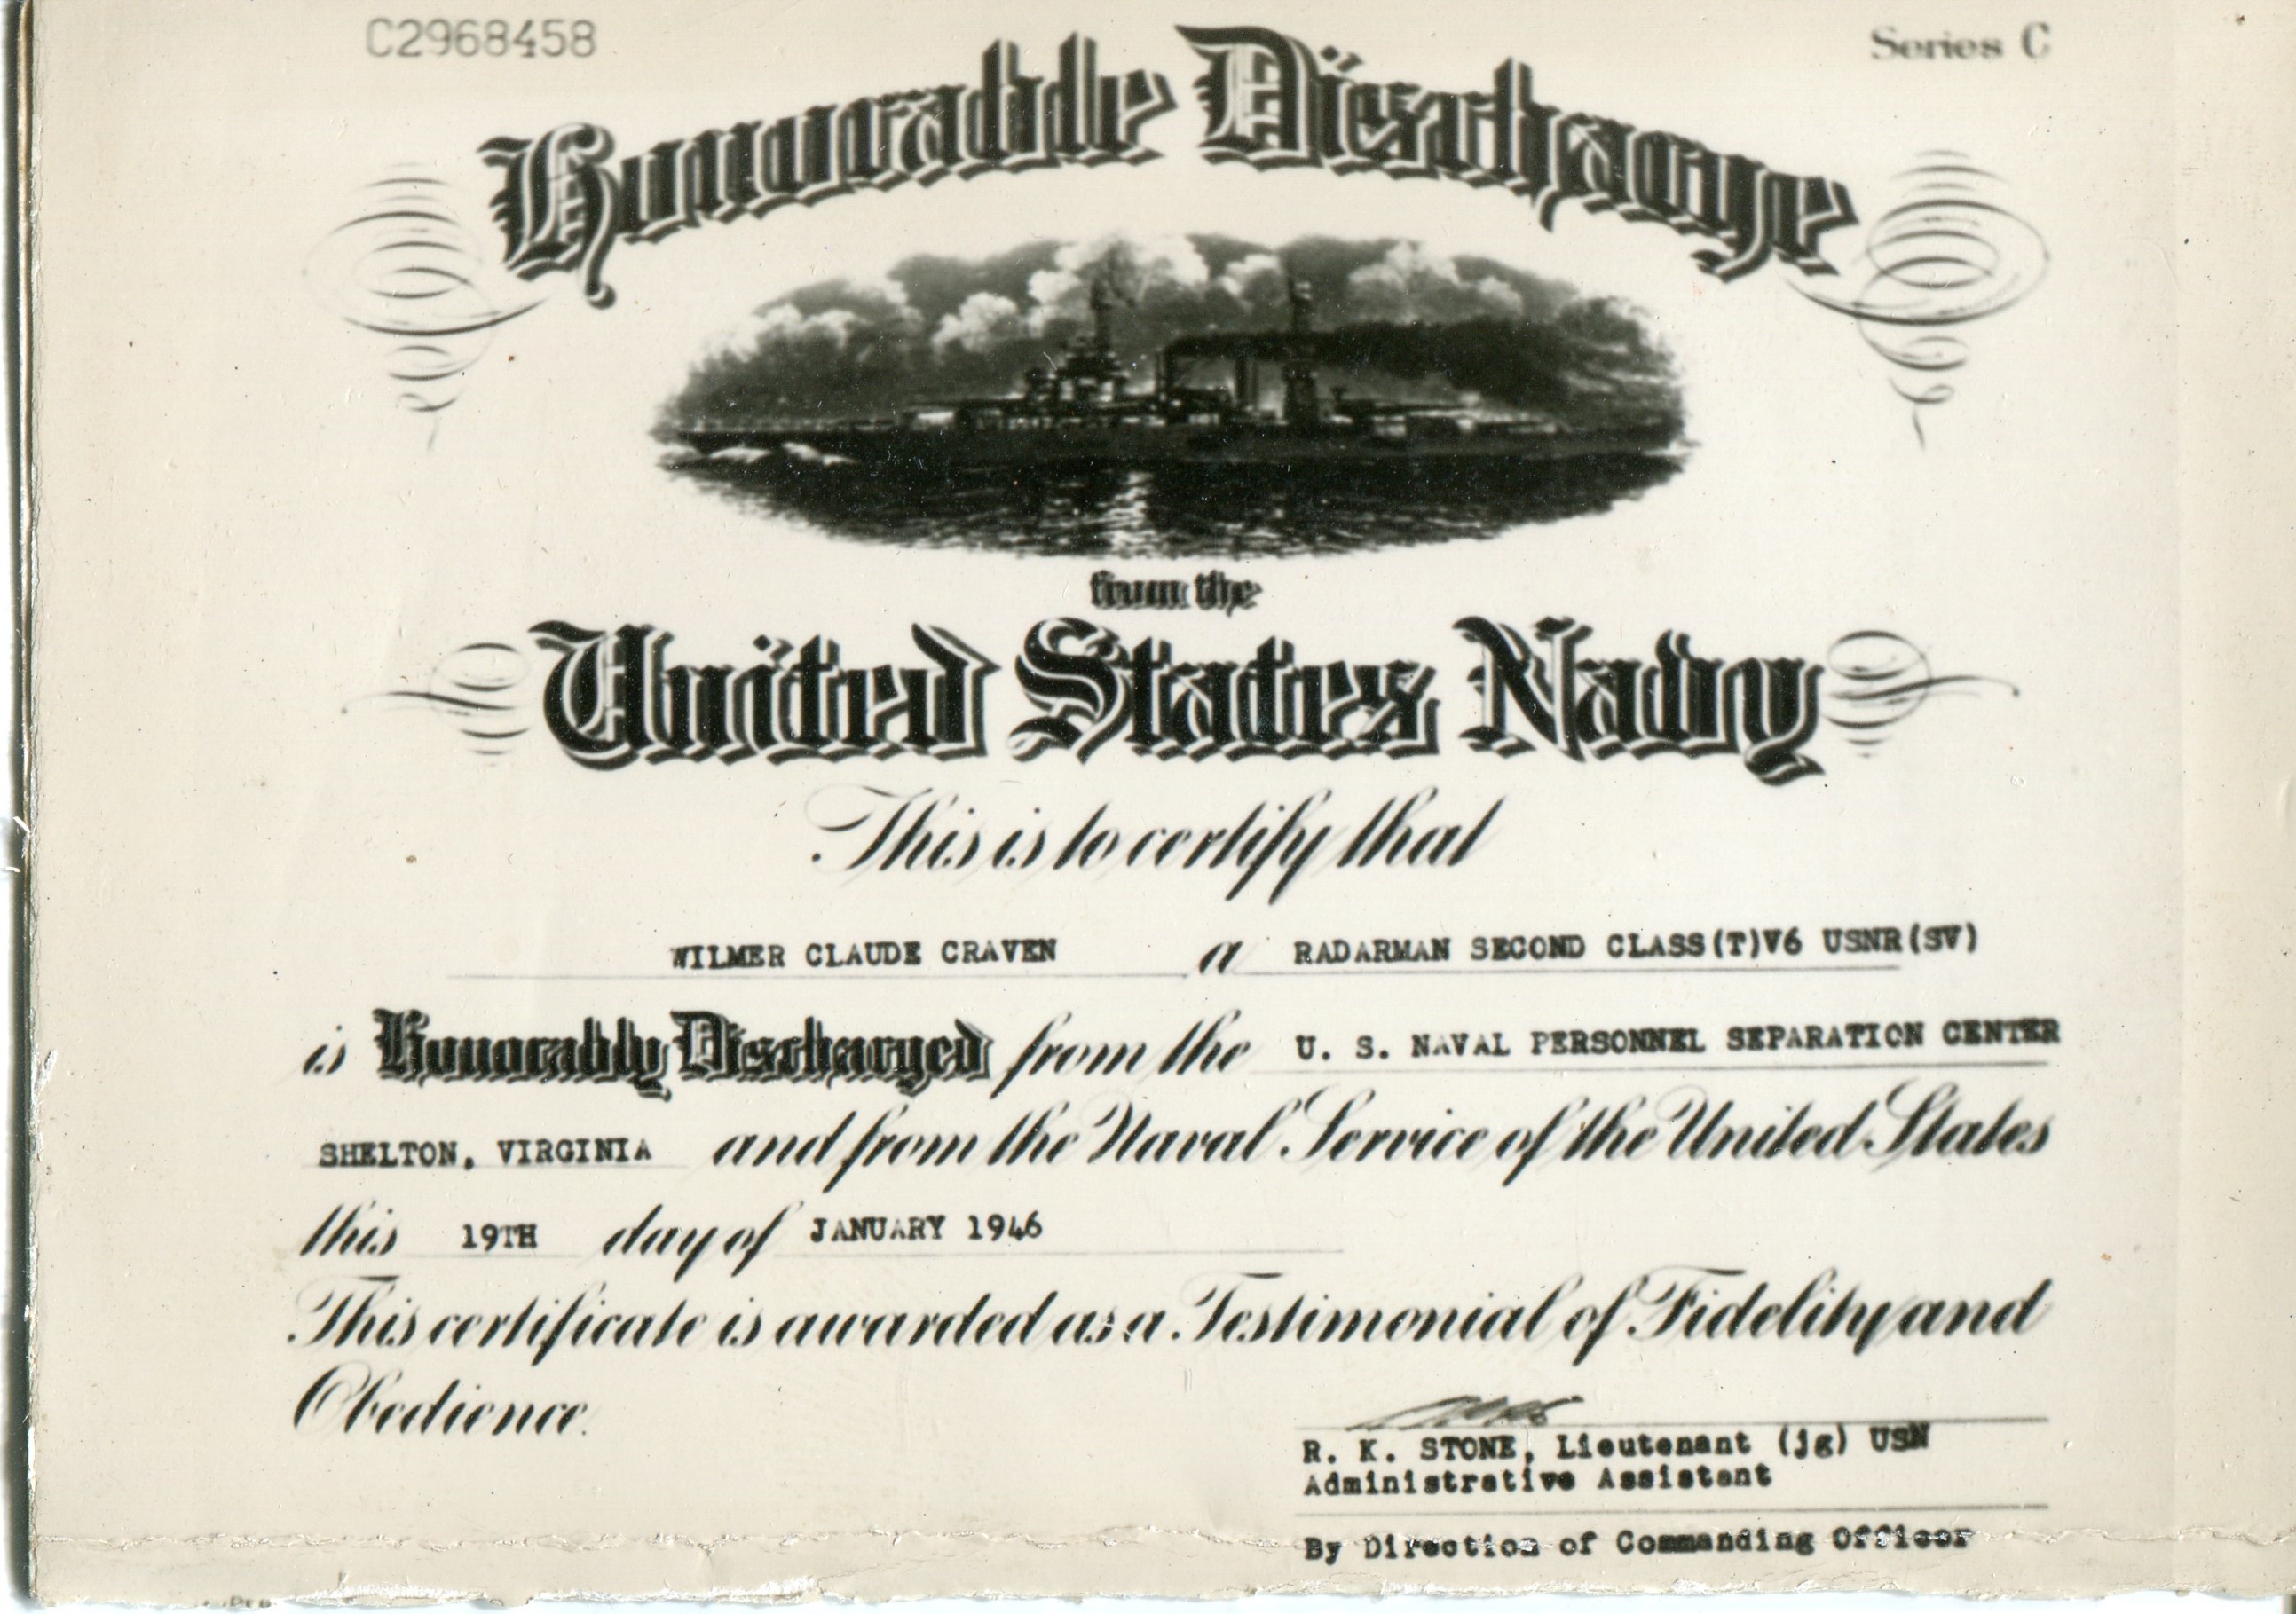 C2968458
Series C
Honorable Discharge
from the
United States Navy
This is to certify that
WILMER CLAUDE CRAVEN a RADARMAN SECOND CLASS(T)V6 USNR(SV)
is Honorably Discharged from the U. S. NAVAL PERSONNEL SEPARATION CENTER
SHELTON, VIRGINIA and from the Naval Service of the United States
this 19TH day of JANUARY 1946
This certificate is awarded as a Testimonial of Fidelity and
Obedience.
R. K. STONE, Lieutenant (jg) USN
Administrative Assistant
By Direction of Commanding Officer